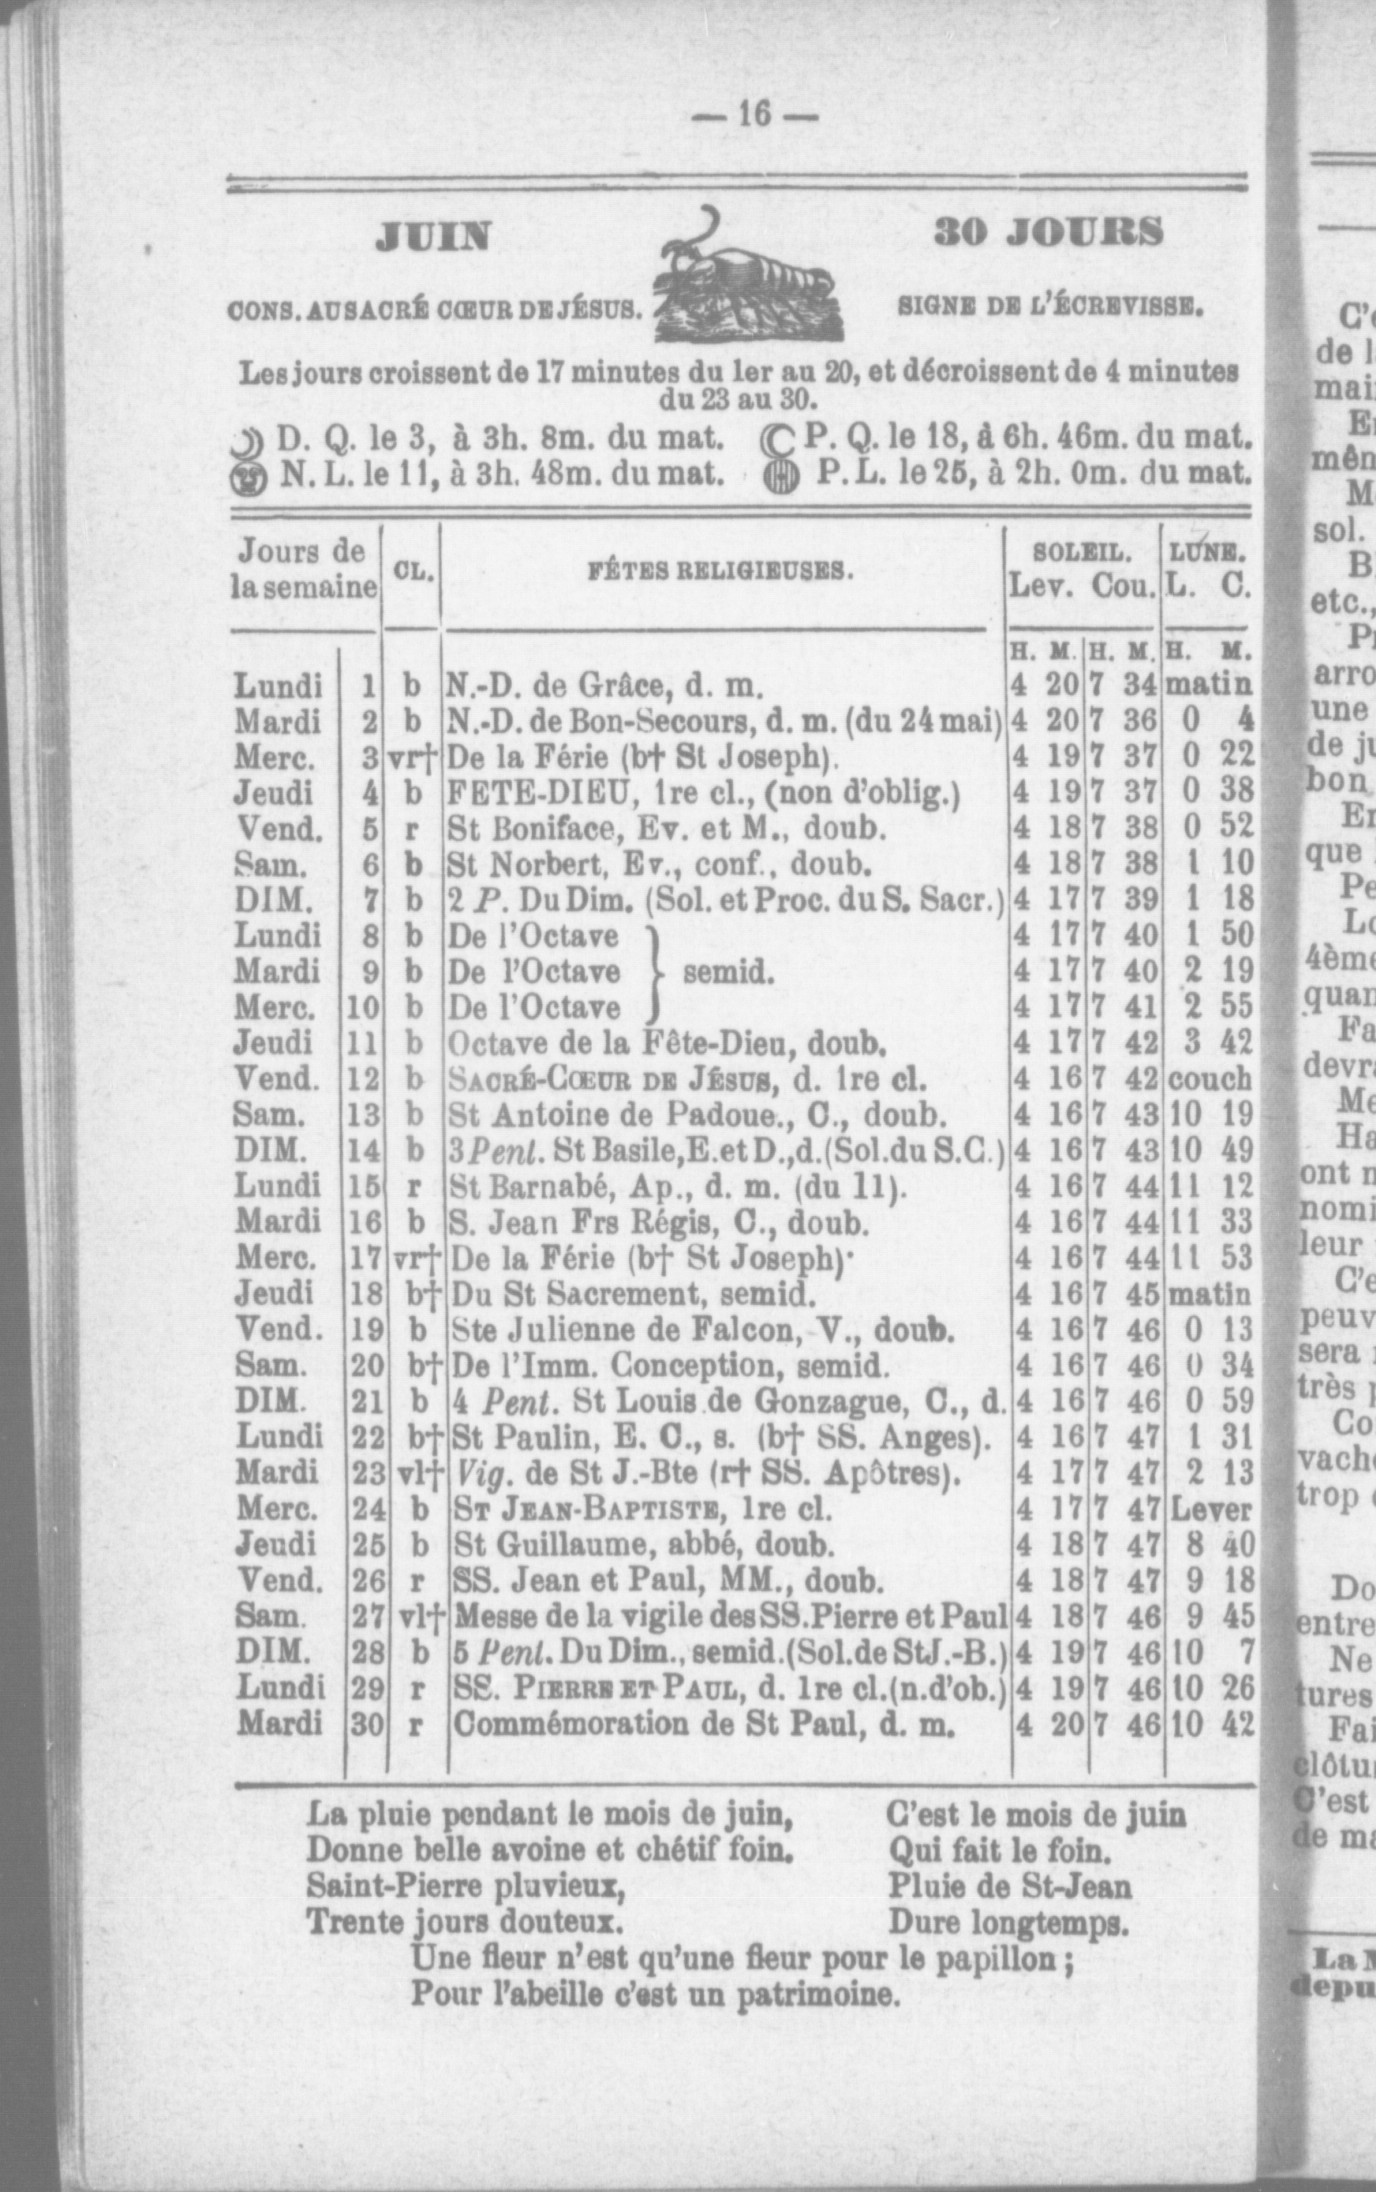 — 16 —
JUIN 30 JOURS
CONS. AU SACRÉ CŒUR DE JÉSUS. SIGNE DE L'ÉCREVISSE.
Les jours croissent de 17 minutes du 1er au 20, et décroissent de 4 minutes
du 23 au 30.
D. Q. le 3, à 3h. 8m. du mat. P. Q. le 18, à 6h. 46m. du mat.
N. L. le 11, à 3h. 48m. du mat. P. L. le 25, à 2h. 0m. du mat.
Jours de la semaine CL. FÉTES RELIGIEUSES. SOLEIL. Lev. Cou. LUNE. L. C.
H. M. H. M. H. M.
Lundi 1 b N.-D. de Grâce, d. m. 4 20 7 34 matin
Mardi 2 b N.-D. de Bon-Secours, d. m. (du 24 mai) 4 20 7 36 0 4
Merc. 3 vr† De la Férie (b† St Joseph). 4 19 7 37 0 22
Jeudi 4 b FETE-DIEU, 1re cl., (non d'oblig.) 4 19 7 37 0 38
Vend. 5 r St Boniface, Ev. et M., doub. 4 18 7 38 0 52
Sam. 6 b St Norbert, Ev., conf., doub. 4 18 7 38 1 10
DIM. 7 b 2 P. Du Dim. (Sol. et Proc. du S. Sacr.) 4 17 7 39 1 18
Lundi 8 b De l'Octave 4 17 7 40 1 50
Mardi 9 b De l'Octave } semid. 4 17 7 40 2 19
Merc. 10 b De l'Octave 4 17 7 41 2 55
Jeudi 11 b Octave de la Fête-Dieu, doub. 4 17 7 42 3 42
Vend. 12 b SACRÉ-CŒUR DE JÉSUS, d. 1re cl. 4 16 7 42 couch
Sam. 13 b St Antoine de Padoue., C., doub. 4 16 7 43 10 19
DIM. 14 b 3 Pent. St Basile, E. et D., d. (Sol. du S.C.) 4 16 7 43 10 49
Lundi 15 r St Barnabé, Ap., d. m. (du 11). 4 16 7 44 11 12
Mardi 16 b S. Jean Frs Régis, C., doub. 4 16 7 44 11 33
Merc. 17 vr† De la Férie (b† St Joseph). 4 16 7 44 11 53
Jeudi 18 b† Du St Sacrement, semid. 4 16 7 45 matin
Vend. 19 b Ste Julienne de Falcon, V., doub. 4 16 7 46 0 13
Sam. 20 b† De l'Imm. Conception, semid. 4 16 7 46 0 34
DIM. 21 b 4 Pent. St Louis de Gonzague, C., d. 4 16 7 46 0 59
Lundi 22 b† St Paulin, E. C., s. (b† SS. Anges). 4 16 7 47 1 31
Mardi 23 vl† Vig. de St J.-Bte (r† SS. Apôtres). 4 17 7 47 2 13
Merc. 24 b ST JEAN-BAPTISTE, 1re cl. 4 17 7 47 Lever
Jeudi 25 b St Guillaume, abbé, doub. 4 18 7 47 8 40
Vend. 26 r SS. Jean et Paul, MM., doub. 4 18 7 47 9 18
Sam. 27 vl† Messe de la vigile des SS. Pierre et Paul 4 18 7 46 9 45
DIM. 28 b 5 Pent. Du Dim., semid. (Sol. de St J.-B.) 4 19 7 46 10 7
Lundi 29 r SS. PIERRE ET PAUL, d. 1re cl. (n. d'ob.) 4 19 7 46 10 26
Mardi 30 r Commémoration de St Paul, d. m. 4 20 7 46 10 42
La pluie pendant le mois de juin,
Donne belle avoine et chétif foin.
Saint-Pierre pluvieux,
Trente jours douteux.
C'est le mois de juin
Qui fait le foin.
Pluie de St-Jean
Dure longtemps.
Une fleur n'est qu'une fleur pour le papillon ;
Pour l'abeille c'est un patrimoine.
de l
sol.
etc.,
arro
une
de ju
bon
que
4ème
quan
ont n
leur
peuv
sera
très p
trop
entre
Ne
C'est
de ma